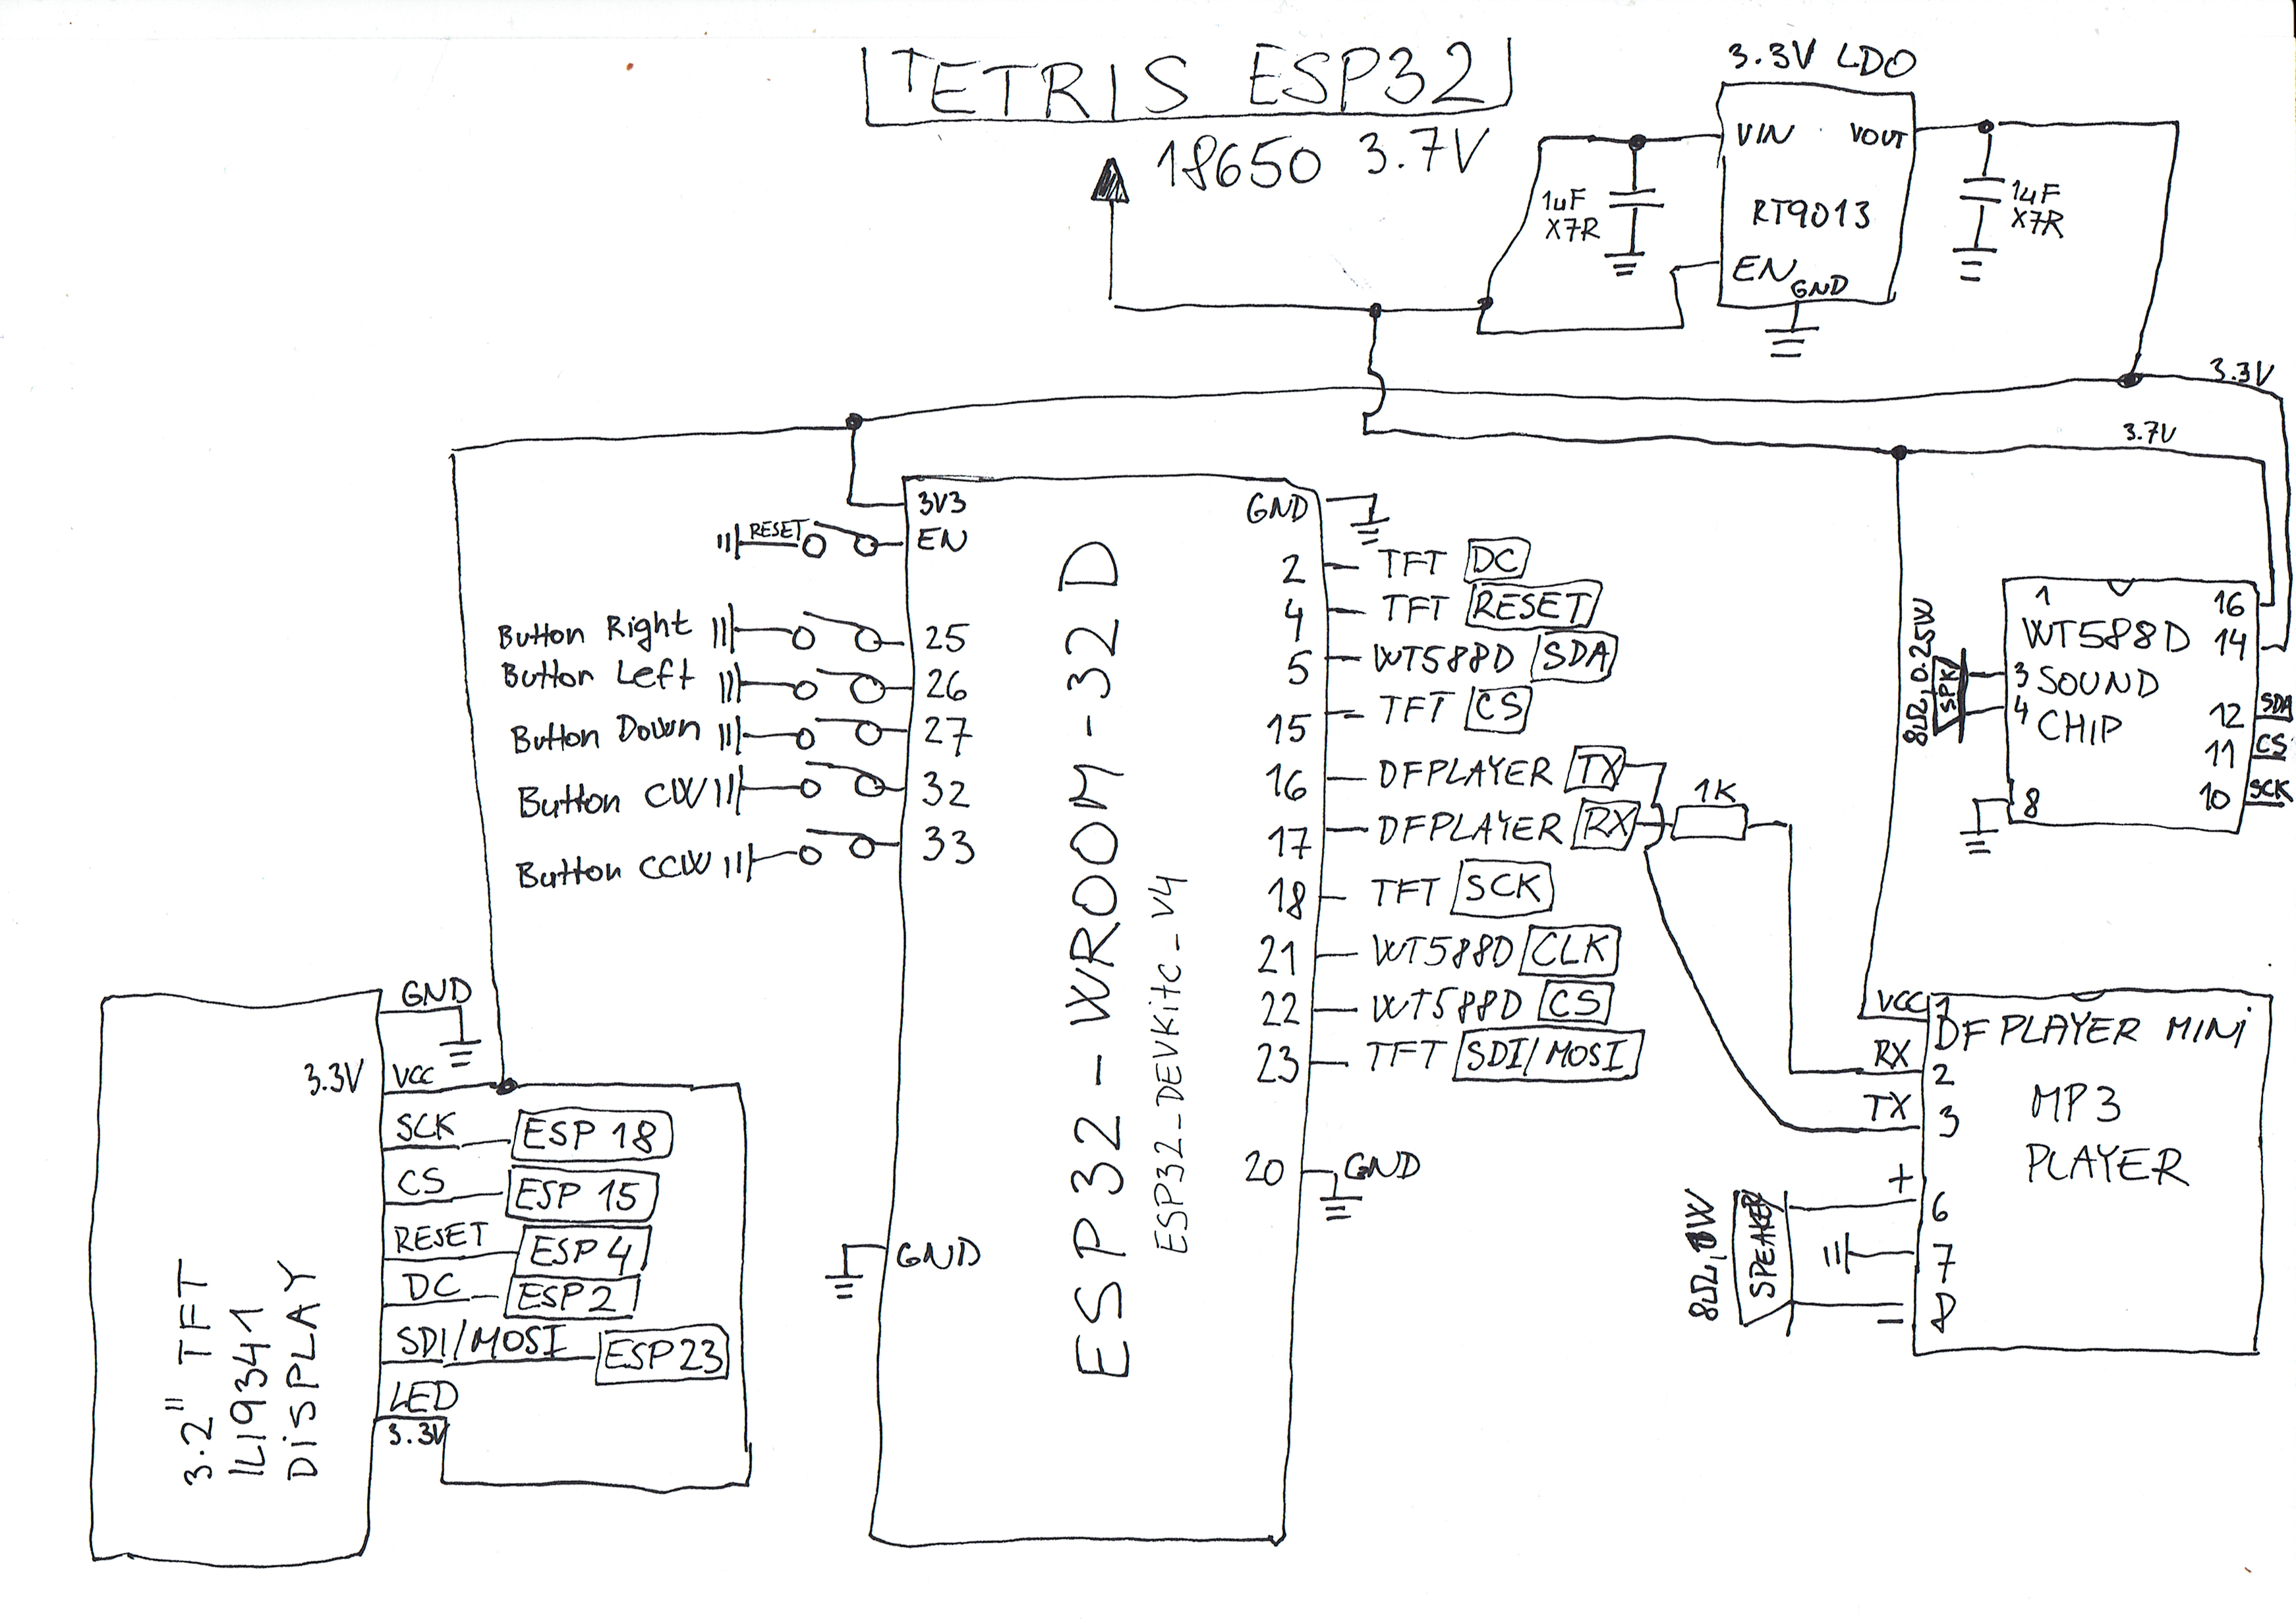 TETRIS ESP32
18650 3.7V
3.3V LDO
VIN VOUT
RT9013
EN
GND
1uF
X7R
1uF
X7R
3.3V
3.7V
3V3
EN
RESET
Button Right
25
Button Left
26
Button Down
27
Button CW
32
Button CCW
33
GND
ESP32-WROOM-32D
ESP32_DEVKitC_V4
GND
2 TFT DC
4 TFT RESET
5 WT588D SDA
15 TFT CS
16 DFPLAYER TX
17 DFPLAYER RX
1K
18 TFT SCK
21 WT588D CLK
22 WT588D CS
23 TFT SDI/MOSI
20 GND
1 16
WT588D 14
3 SOUND
4 CHIP
12 SDA
11 CS
10 SCK
8
8Ω, 0.25W
SPK
VCC 1
DFPLAYER MINI
RX 2
MP3
TX 3
PLAYER
+ 6
7
- 8
8Ω, 1W
SPEAKER
GND
3.3V VCC
SCK ESP 18
CS ESP 15
RESET ESP 4
DC ESP 2
SDI/MOSI ESP 23
LED
3.3V
3.2" TFT
ILI9341
DISPLAY